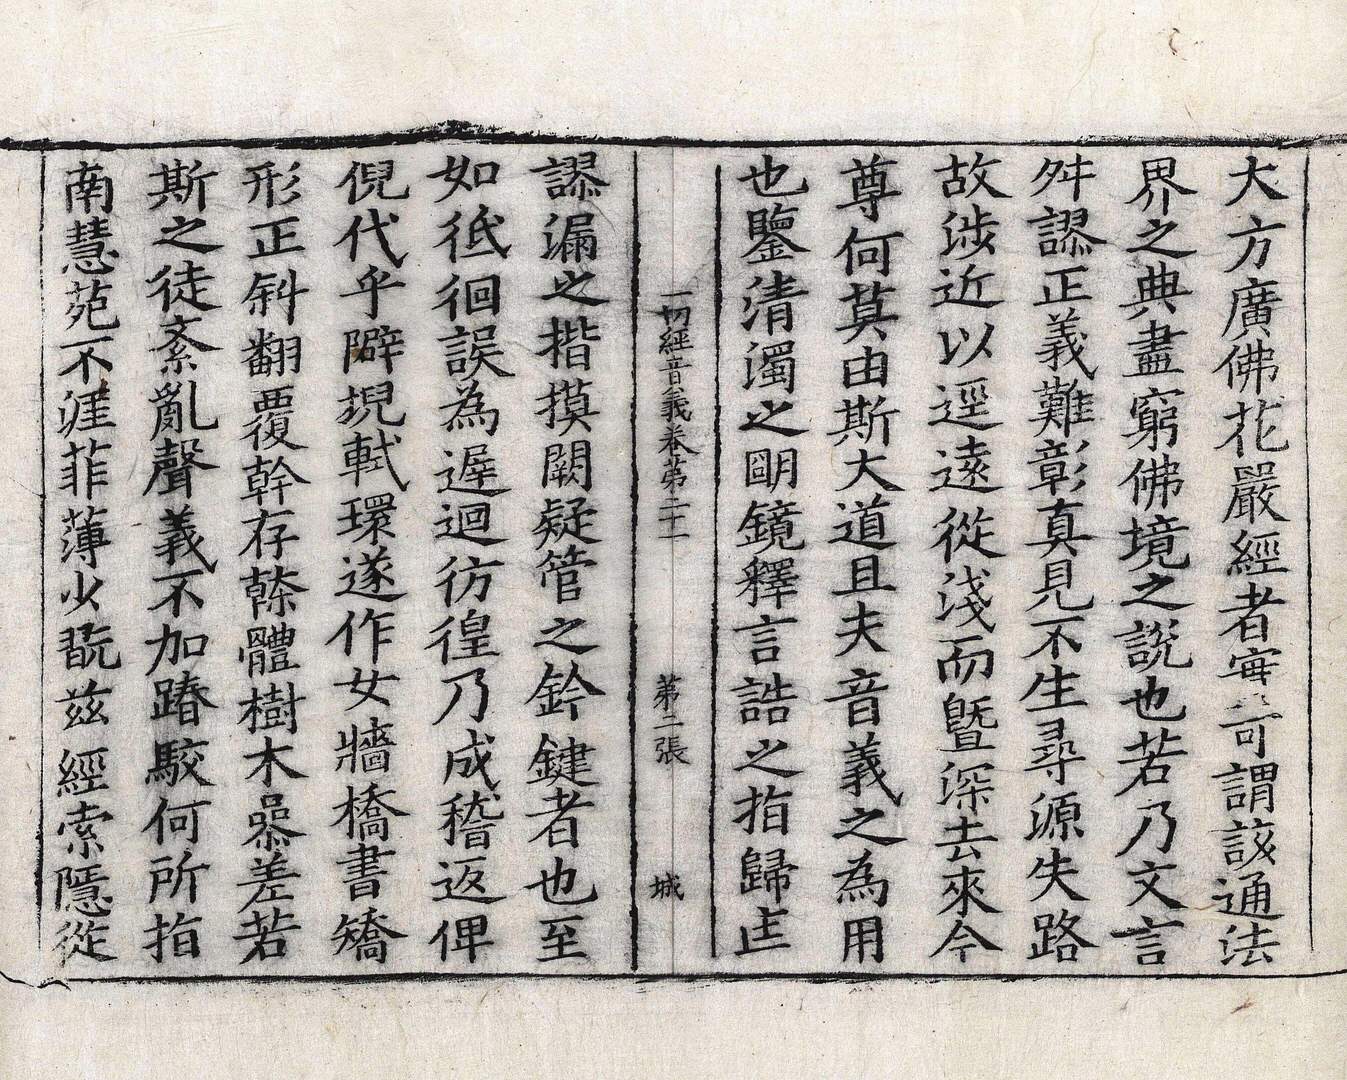 大方廣佛花嚴經者寔可謂該通法
界之典盡窮佛境之說也若乃文言
舛謬正義難彰真見不生尋源失路
故涉近以遥遠從淺而暨深去來今
尊何莫由斯大道且夫音義之為用
也鑒清濁之明鏡釋言誥之指歸㐀
一切經音義卷第二十一 第二張 城
謬漏之楷摸闕疑管之鈐鍵者也至
如彽徊誤為遲迴彷徨乃成稽返俾
倪代乎隦堄軾環遂作女牆橋書矯
形正斜翻覆幹存榦體樹木叅差若
斯之徒紊亂聲義不加踳駮何所指
南慧苑不涯菲薄少翫兹經索隱從